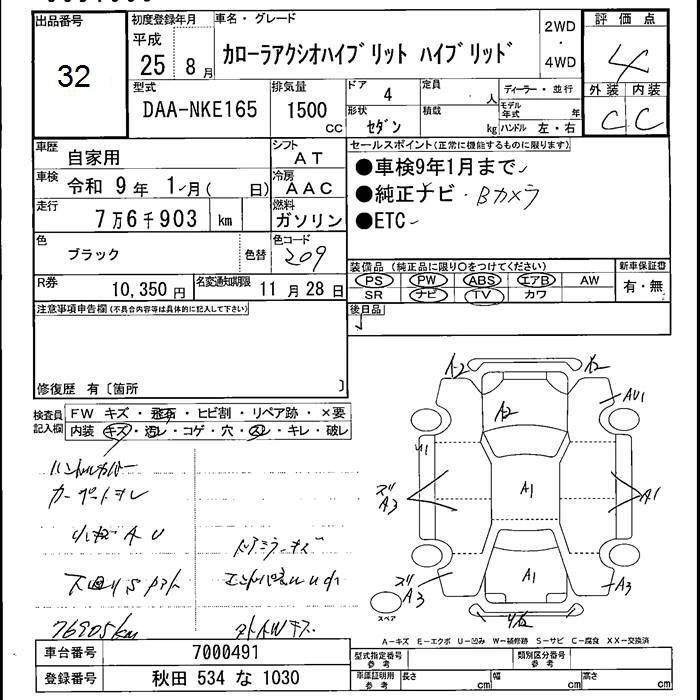 出品番号
32
初度登録年月
平成
25 8月
車名・グレード
カローラアクシオハイブリット ハイブリッド
2WD
・
4WD
評価点
4
外装 内装
C C
型式
DAA-NKE165
排気量
1500
cc
ドア 4
形状 セダン
定員 人
積載 kg
ディーラー・並行
モデル年式 年
ハンドル 左・右
車歴 自家用
シフト AT
車検 令和 9年 1月( 日)
冷房 AAC
走行 7万6千903 km
燃料 ガソリン
色 ブラック
色替
色コード 209
R券 10,350円
名変通知期限 11月28日
セールスポイント(正常に機能するものに限ります)
●車検9年1月まで
●純正ナビ・Bカメラ
●ETC
装備品(純正品に限り○をつけてください)
PS PW ABS エアB AW
SR ナビ TV カワ
新車保証書
有・無
後日品
注意事項申告欄(不具合内容等は具体的に記入して下さい)
修復歴 有〔箇所 〕
検査員記入欄
FW キズ・飛石・ヒビ割・リペア跡・×要
内装 キズ・汚レ・コゲ・穴・スレ・キレ・破レ
ハンドルカバー
76905km
A-2
A2
A2
AU1
U1
ズ
A3
A1
A1
A1
ズリ
A3
A3
スペア
A-キズ E-エクボ U-凹み W-補修跡 S-サビ C-腐食 XX-交換済
車台番号 7000491
登録番号 秋田 534 な 1030
型式指定番号 参考
類別区分番号 参考
車庫証明用 参考 長さ cm 幅 cm 高さ cm